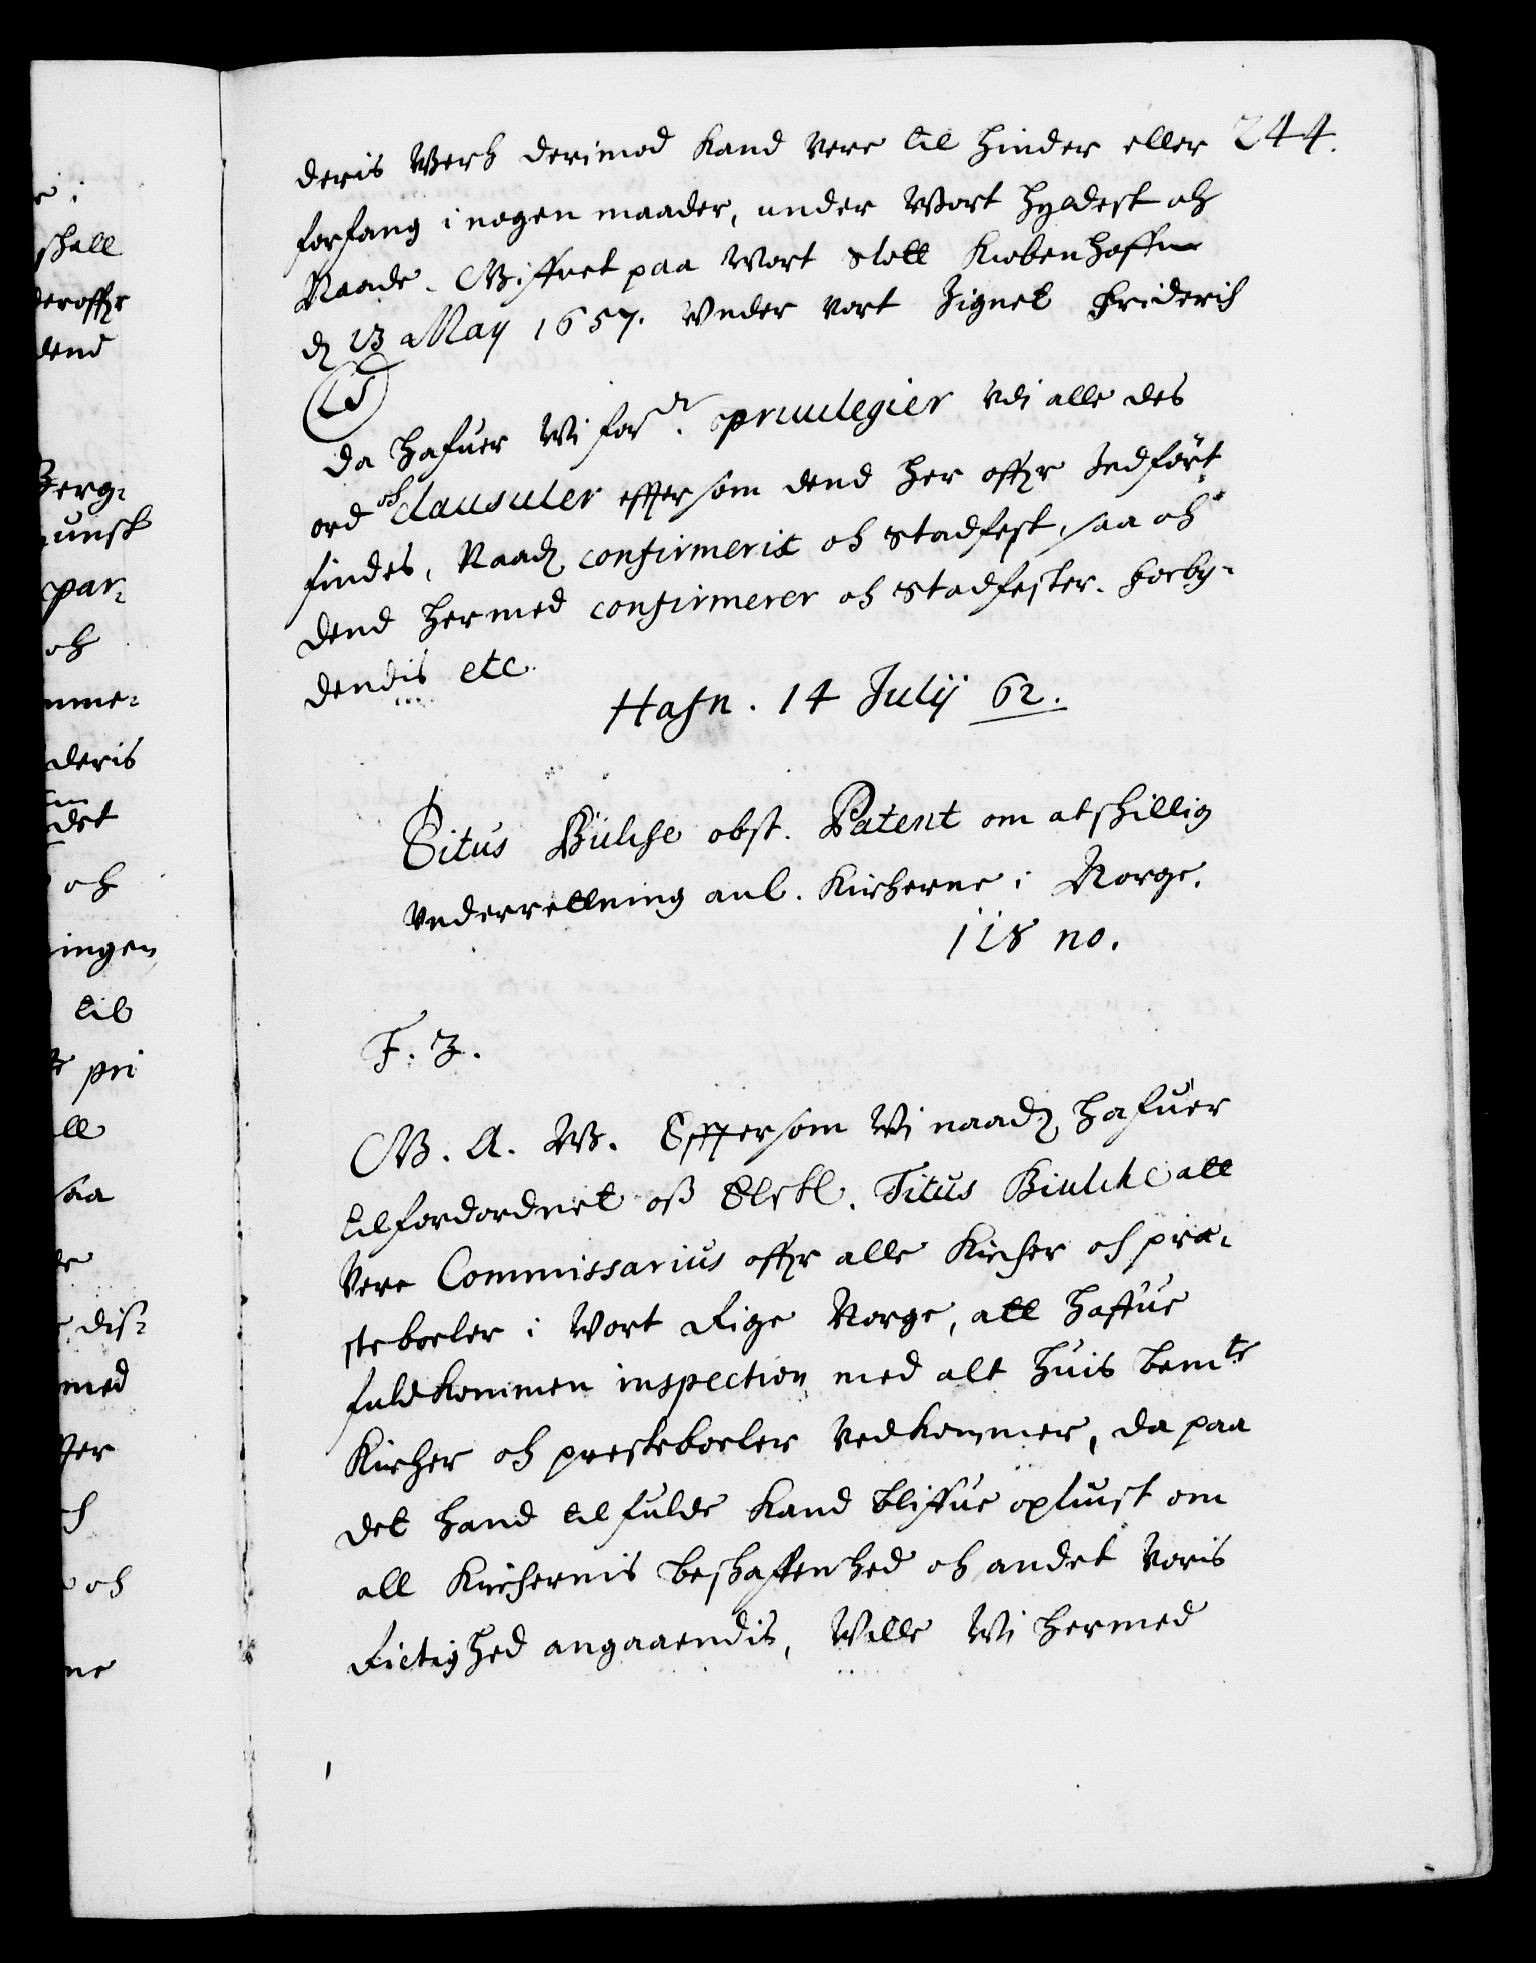 244.
deris Werk derimod kand vere til hinder eller
forfang i nogen maader, under Wort hyldest och
Naade. Giffvet paa Wort Slott Kiøbenhaffn
d 13 May 1657. Under vort Zignet Friderich
LS
da hafuer Wi forⁿ. privilegier udi alle des
ord och Clausuler effter som dend her offr Indfört
findes, Naadᵗ confirmerit och stadfest, saa och
dend hermed confirmerer och stadfester. Forby-
dendis etc.
Hafn. 14 Julij 62.
Titus Bülche obst. Patent om atskillig
underrettning anl. Kircherne i Norge.
118 no.
F. 3.
G. A. W. Efftersom Wi naadᵗ hafuer
tilforordnet oß Elskl. Titus Biulche att
vere Commissarius offr alle Kircher och præ-
steboeler i Wort Rige Norge, att haffue
fuldkommen inspection med alt huis bemᵗᵉ
Kircher och presteboeler vedkommer, da paa
det hand til fulde kand bliffue oplyust om
all Kirchernis beskaffenhed och andet voris
Rictighed angaaendis, Wille Wi hermed
skall
deroffr
dend
Berg-
unst
par-
och
mme-
deris
det
och
ingen
til
pri
saa
dis-
med
och